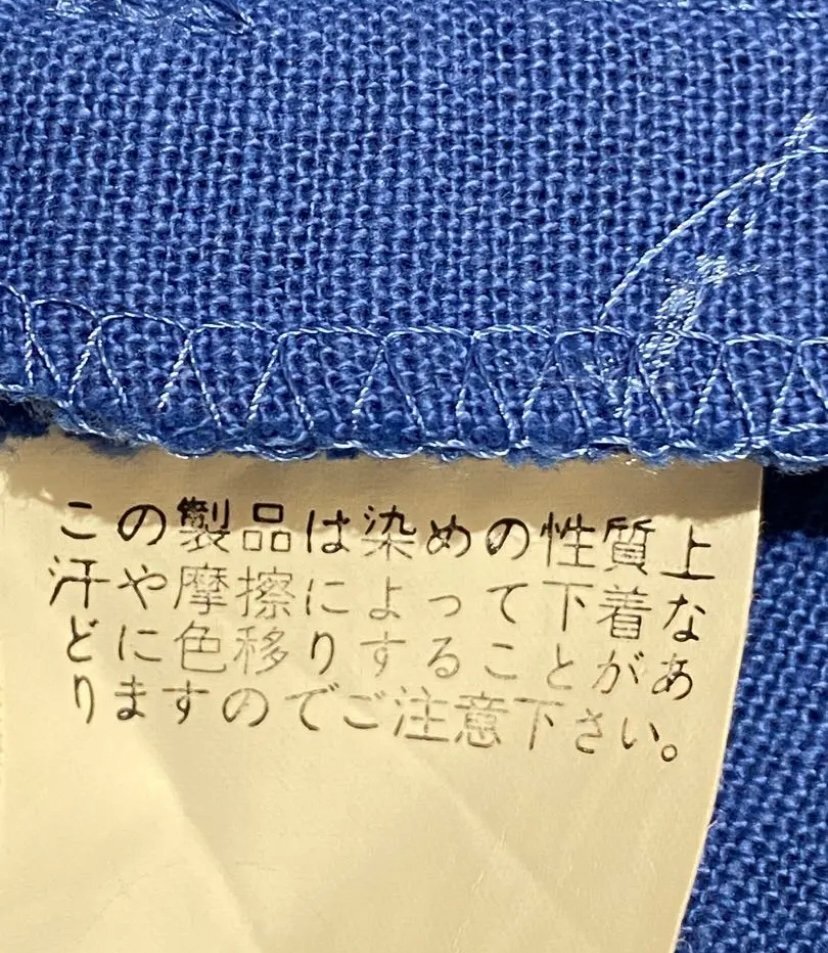 この製品は染めの性質上
汗や摩擦によって下着な
どに色移りすることがあ
りますのでご注意下さい。